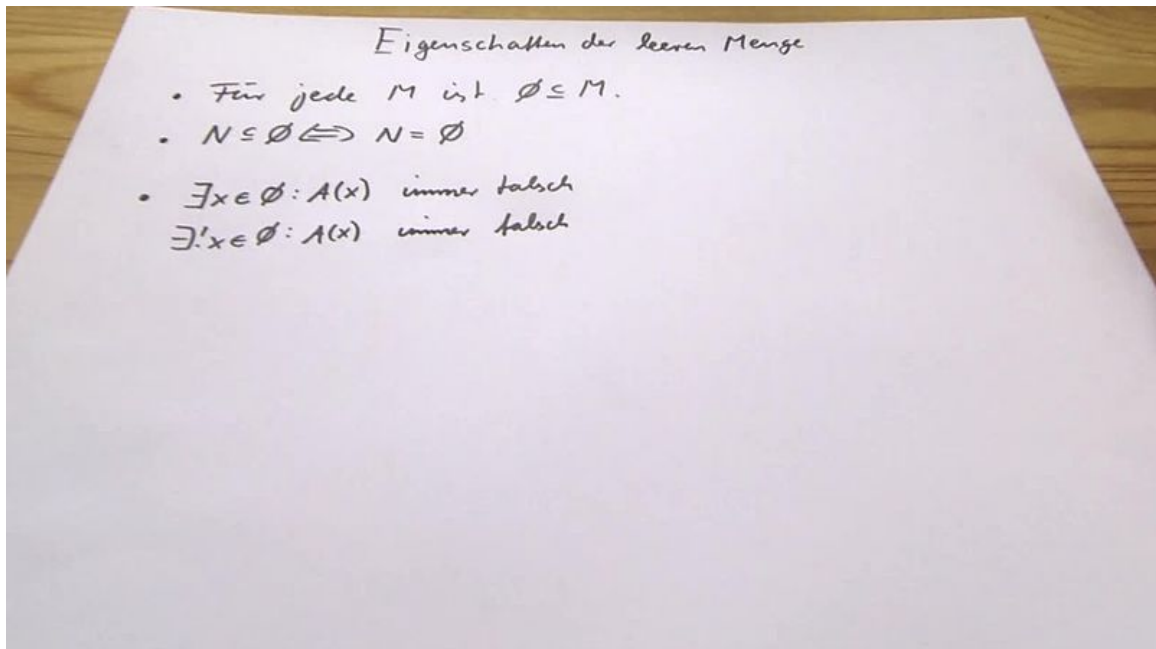 Eigenschaften der leeren Menge
• Für jede M ist ∅ ⊆ M.
• N ⊆ ∅ ⟺ N = ∅
• ∃x ∈ ∅ : A(x) immer falsch
∃!x ∈ ∅ : A(x) immer falsch